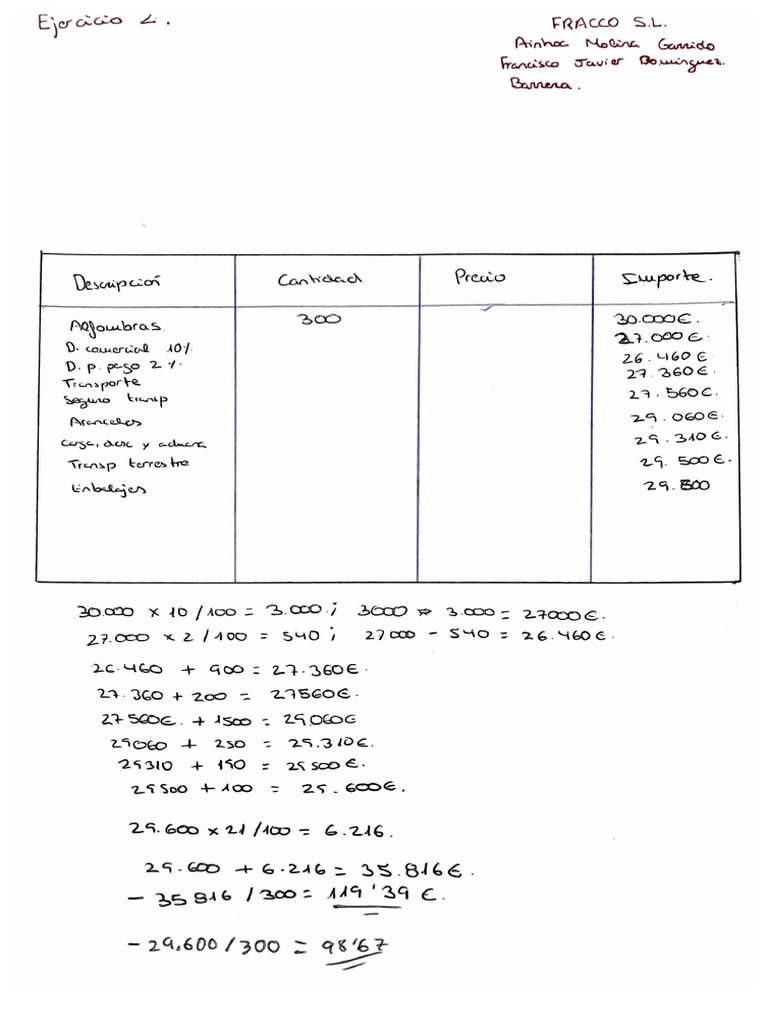 Ejercicio 2.
FRACCO S.L.
Ainhoa Molina Garrido
Francisco Javier Dominguez.
Barrera.
Descripción Cantidad Precio Importe.
Alfombras 300 30.000€.
D. comercial 10%. 27.000€.
D. p. pago 2%. 26.460€.
Transporte 27.360€.
Seguro transp 27.560€.
Aranceles 29.060€.
Carga, desc y aduana 29.310€.
Transp terrestre 29.500€.
Embalajes 29.600
30.000 x 10/100 = 3.000.; 3000 - 3.000 = 27000€.
27.000 x 2/100 = 540; 27000 - 540 = 26.460€.
26.460 + 900 = 27.360€.
27.360 + 200 = 27560€.
27560€. + 1500 = 29.060€
29060 + 250 = 29.310€.
29310 + 190 = 29500€.
29500 + 100 = 29.600€.
29.600 x 21/100 = 6.216.
29.600 + 6.216 = 35.816€.
- 35816 / 300 = 119'39 €.
- 29.600 / 300 = 98'67